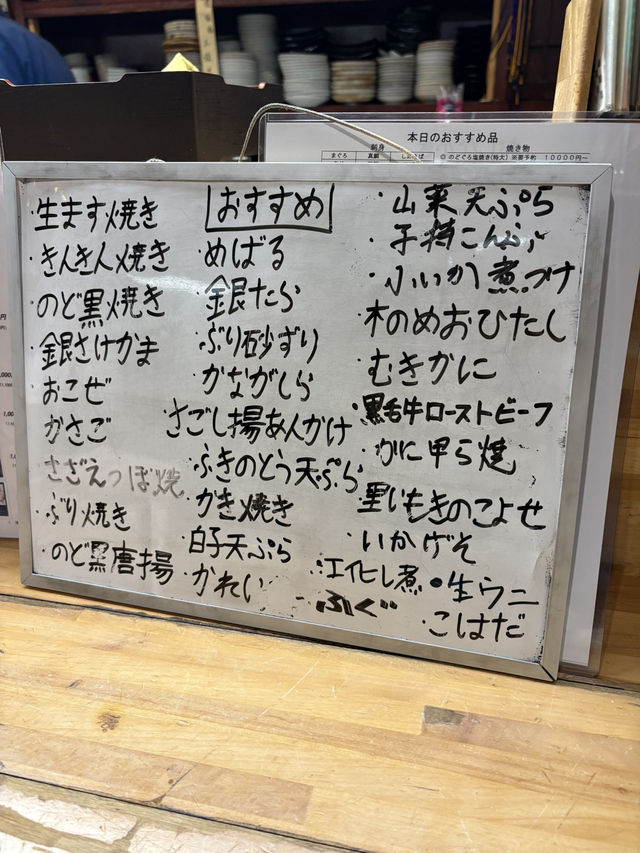 本日のおすすめ品
刺身
焼き物
まぐろ
真鯛
◎のどぐろ塩焼き(特大)※要予約 10000円~
おすすめ
・生ます焼き
・きんきん焼き
・のど黒焼き
・銀さけかま
・おこぜ
・かさご
・さざえつぼ焼
・ぶり焼き
・のど黒唐揚
・めばる
・銀たら
・ぶり砂ずり
・かながしら
・さごし揚あんかけ
・ふきのとう天ぷら
・かき焼き
・白子天ぷら
・かれい
・山菜天ぷら
・子持こんぶ
・小いか煮つけ
・木のめおひたし
・むきかに
・黒毛牛ローストビーフ
・かに甲ら焼
・里いもきのこよせ
・いかげそ
・
・生ウニ
・ふぐ
・こはだ